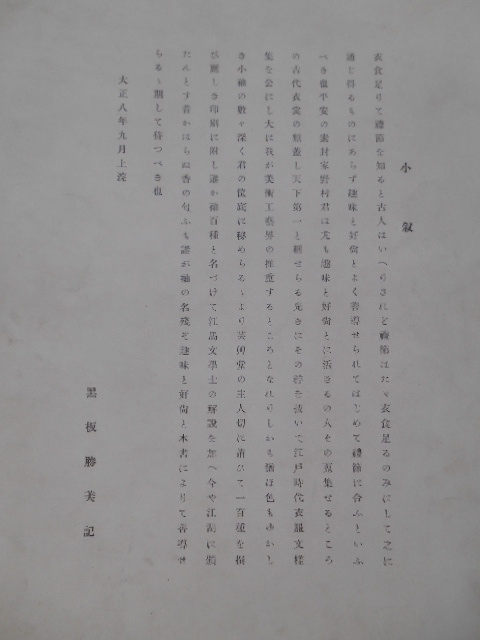 小叙
衣食足りて禮節を知ると古人はいへりされど禮節はたゞ衣食足るのみにして之に
通じ得るものにあらず趣味と好尚とよく善導せられてはじめて禮節に合ふといふ
べき也平安の素封家野村君は尤も趣味と好尚とに活きるの人その蒐集せるところ
の古代衣裳の類蓋し天下第一と稱せらる先きにその粹を拔いて江戸時代衣服文樣
集を公にし大に我が美術工藝界の推重するところとなれりしかも猶ほ色もゆかし
き小袖の數々深く君の篋底に秘めらるゝより芸艸堂の主人切に請ひて一百種を撰
び麗しき印刷に附し誰が袖百種と名づけて江馬文學士の解說を加へ今や江湖に頒
たんとす昔かはらぬ香の匂ふも誰が袖の名殘ぞ趣味と好尚と本書によりて善導せ
らるゝ期して待つべき也
大正八年九月上浣
黑板勝美記